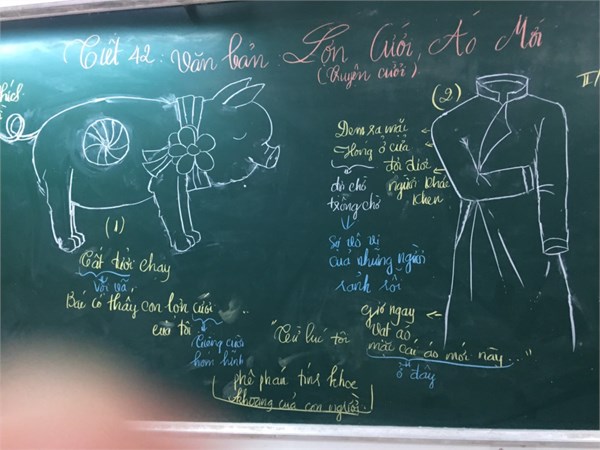 Tiết 42: Văn bản: Lợn Cưới, Áo Mới
(Truyện cười)
(1)
Tất tưởi chạy
Vội vã,
Bác có thấy con lợn cưới
của tôi
"Từ lúc tôi
phê phán tính khoe
khoang của con người.
(2)
Đem ra mặc
Hóng ở cửa
đợi được
người khác
khen
trông chờ
Sự vô vị
của những người
rảnh rỗi
Giơ ngay
vạt áo
mặc cái áo mới này..."
ở đây
II/